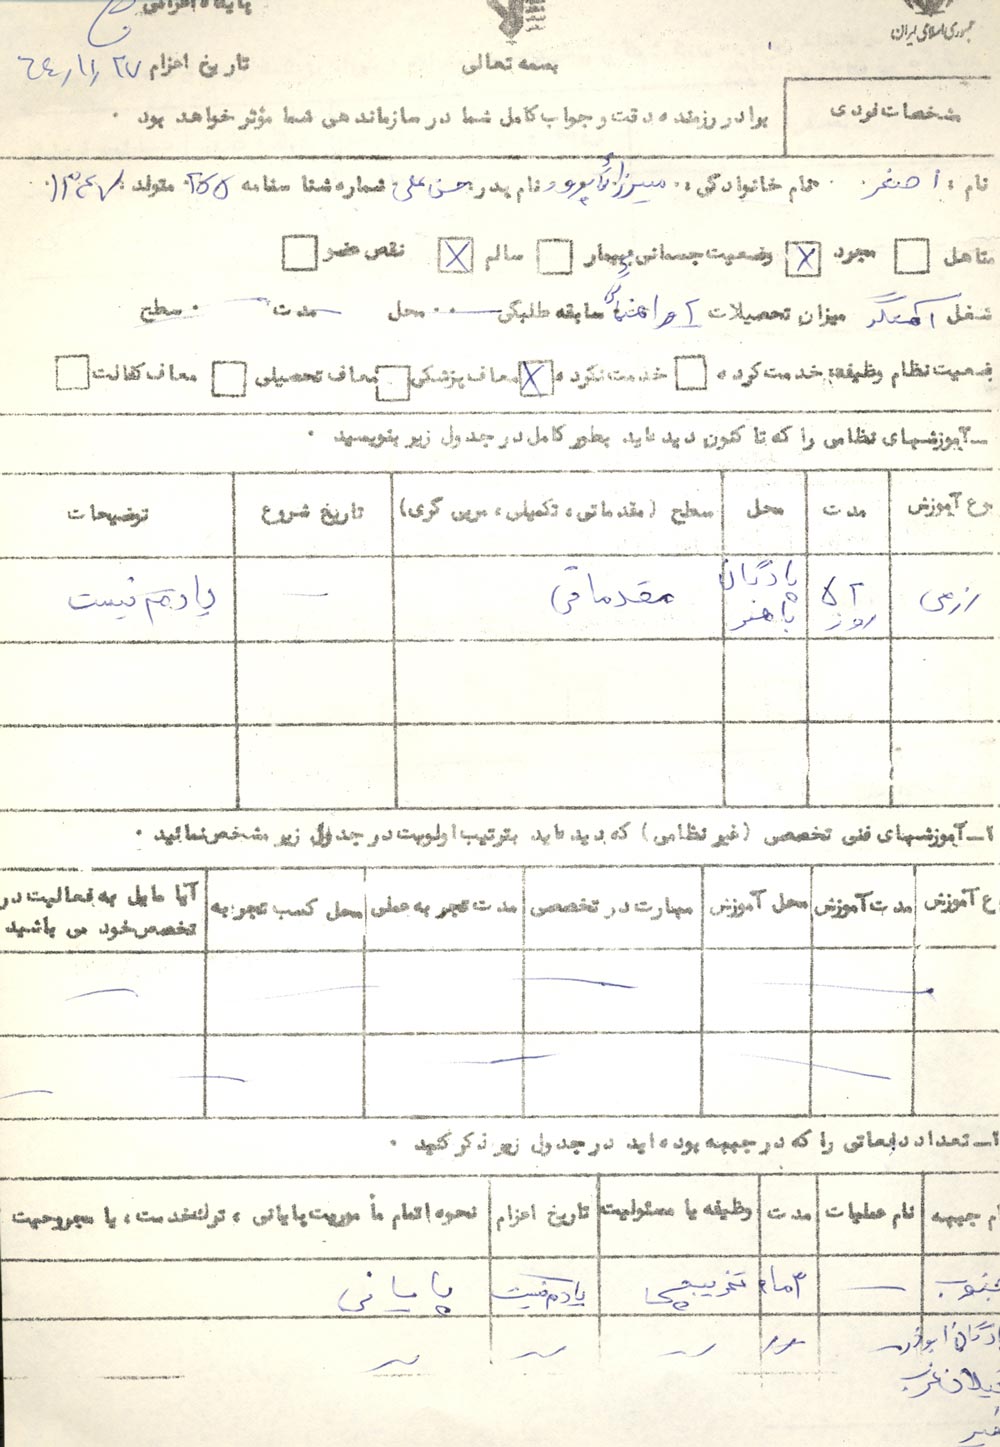 پایگاه اعزامی
جمهوری اسلامی ایران
بسمه تعالی
تاریخ اعزام ۶۴/۱۱/۲۷
مشخصات فردی
برادر رزمنده دقت و جواب کامل شما در سازماندهی شما مؤثر خواهد بود .
نام : اصغر نام خانوادگی : میرزائی‌پور نام پدر : حسن علی شماره شناسنامه متولد :
متاهل مجرد X وضعیت جسمانی بیمار سالم X نقص عضو
شغل آهنگر میزان تحصیلات سابقه طلبگی — محل — مدت — سطح
وضعیت نظام وظیفه: خدمت کرده خدمت نکرده X معاف پزشکی معاف تحصیلی معاف کفالت
ـ آموزشهای نظامی را که تا کنون دیده اید بطور کامل در جدول زیر بنویسید .
وع آموزش مدت محل سطح (مقدماتی ، تکمیلی ، مربی گری) تاریخ شروع توضیحات
رزمی ۲۵ روز پادگان باهنر مقدماتی — یادم نیست
۱ـ آموزشهای فنی تخصصی (غیر نظامی) که دیده اید بترتیب اولویت در جدول زیر مشخص نمائید .
وع آموزش مدت آموزش محل آموزش مهارت در تخصصی مدت تجربه عملی محل کسب تجربه آیا مایل به فعالیت در تخصص خود می باشید
۱ـ تعداد دفعاتی را که در جبهه بوده اید در جدول زیر ذکر کنید .
ام جبهه نام عملیات مدت وظیفه یا مسئولیت تاریخ اعزام نحوه اتمام مأموریت پایانی ، ترک خدمت ، یا مجروحیت
جنوب — ۳ماه تخریبچی یادم نیست پایانی
پادگان ابوذر
گیلان غرب